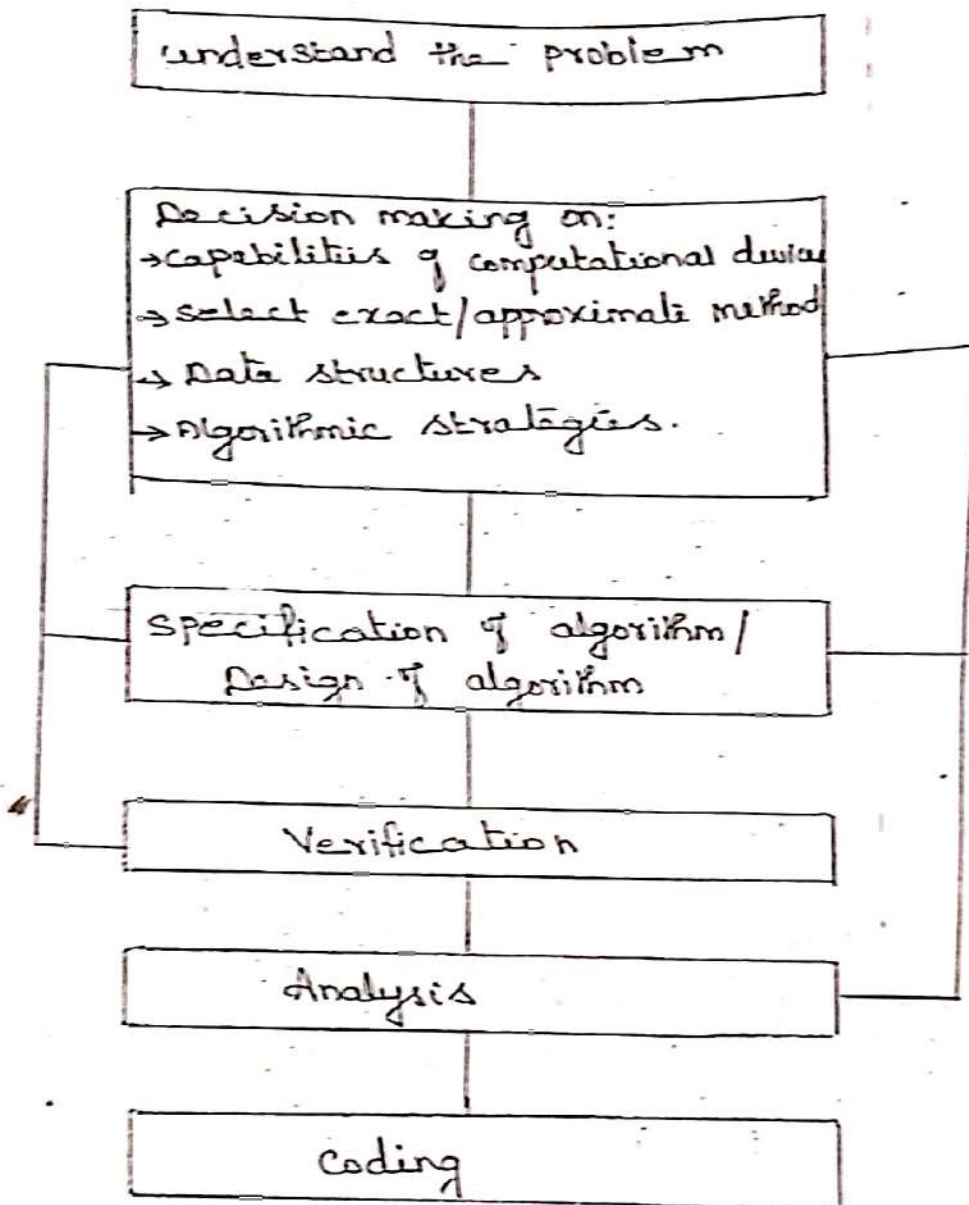 understand the problem
Decision making on:
→ capabilities of computational device
→ select exact/approximate method
→ Data structures
→ Algorithmic strategies.
specification of algorithm/
Design of algorithm
Verification
Analysis
coding